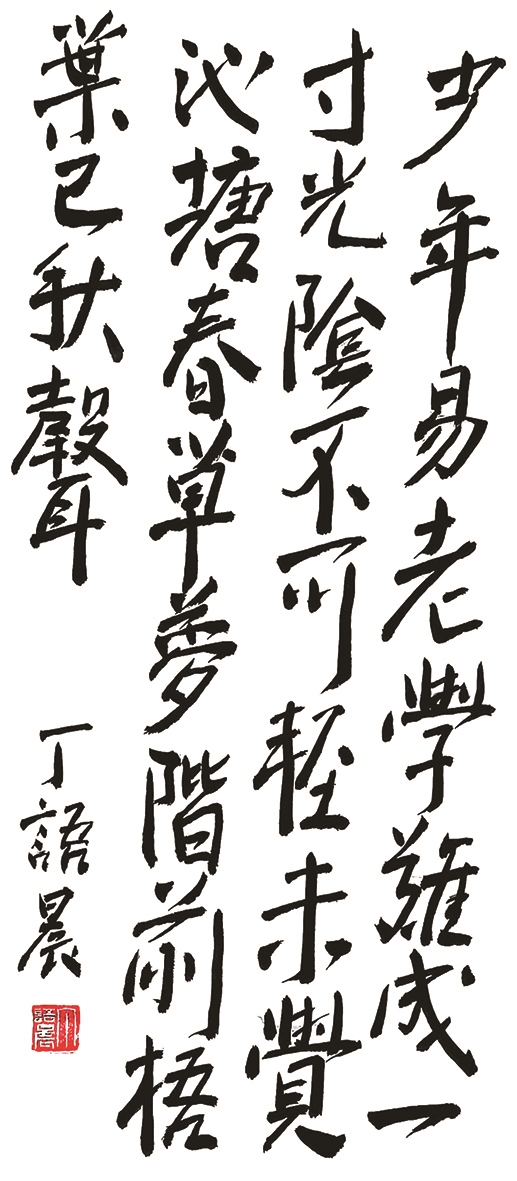 少年易老學難成一
寸光陰不可輕未覺
池塘春草夢階前梧
葉已秋聲
丁語晨